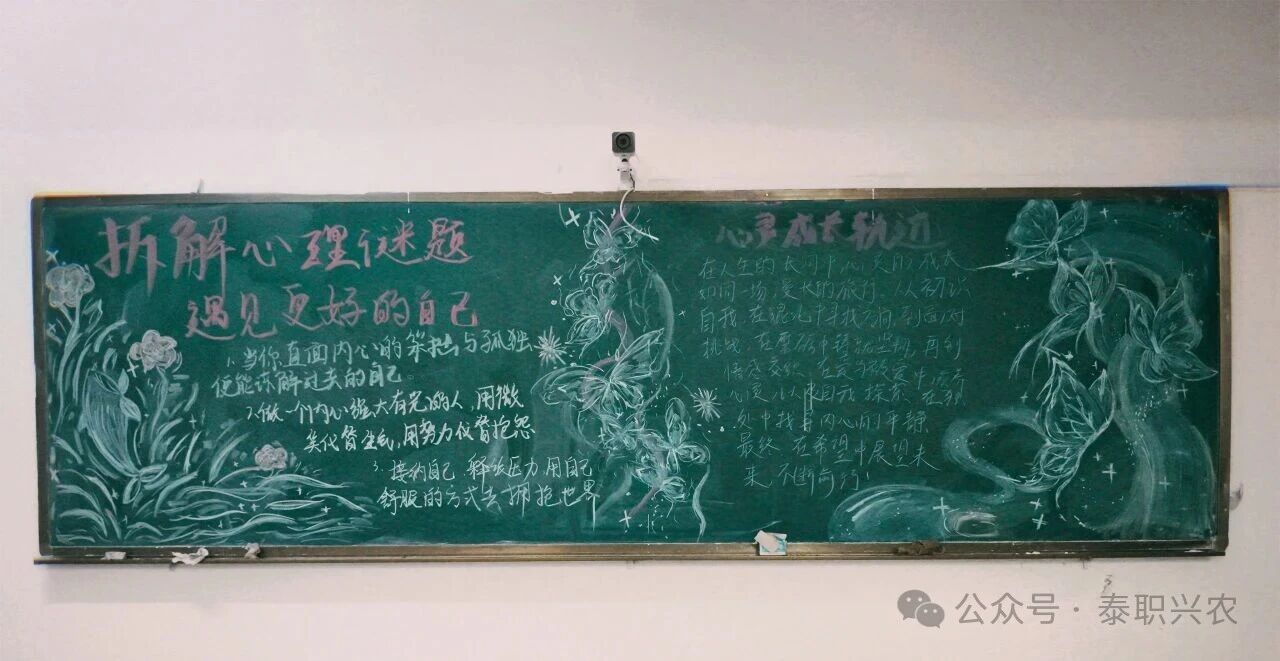 拆解心理谜题
遇见更好的自己
1.当你直面内心的笨拙与孤独
便能谅解过去的自己。
2.做一个内心强大有光的人,用微
笑代替生气,用努力代替抱怨
3.接纳自己 释放压力 用自己
舒服的方式去拥抱世界
心灵成长轨迹
在人生的长河中心灵的成长
如同一场漫长的旅行。从初识
自我,在迷茫中寻找方向,到面对
挑战,在磨砺中铸就坚韧,再到
情感交织,在
心灵 自我探索,在
处中找寻内心的平静
最终,在希望中展望未
来,不断前行!
公众号·泰职兴农